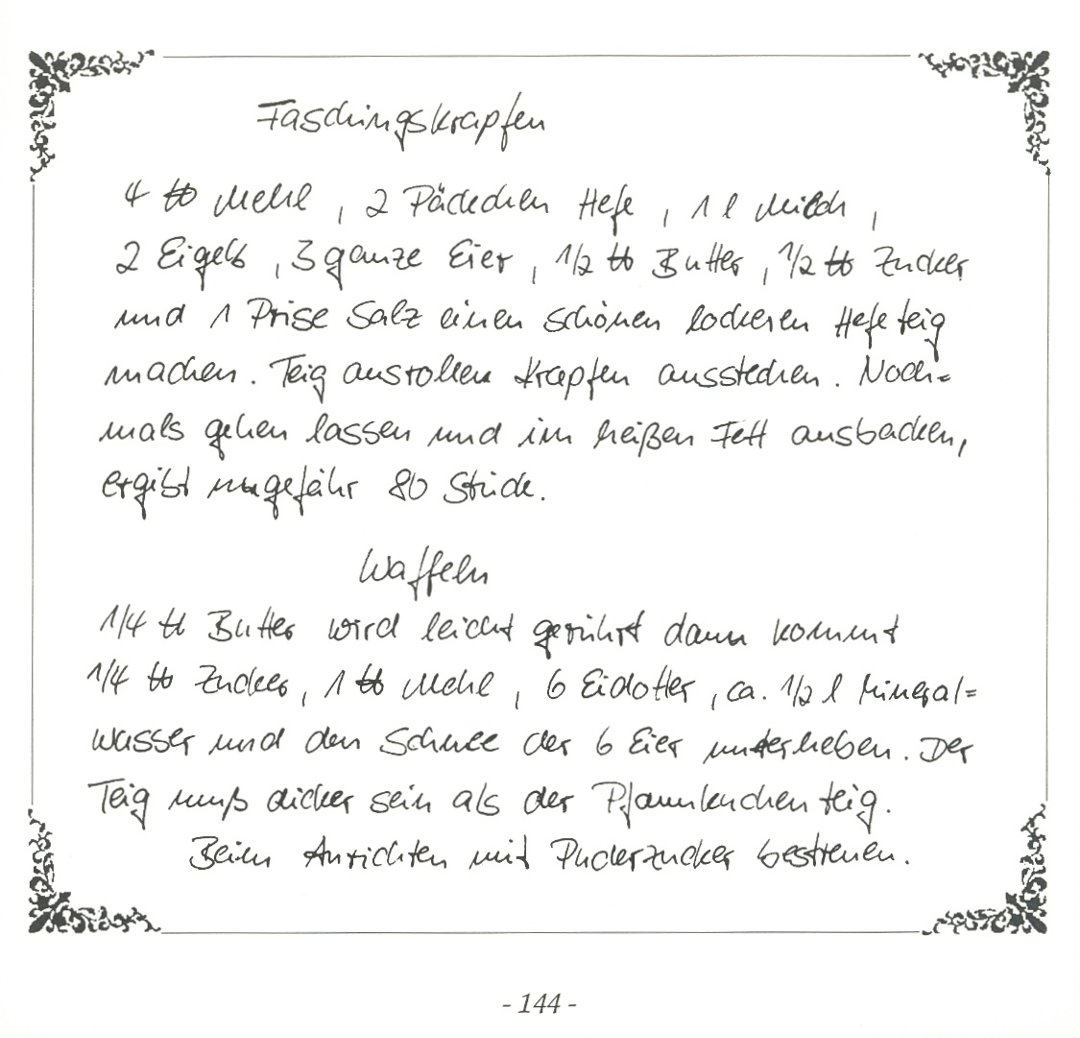 Faschingskrapfen
4 ℔ Mehl, 2 Päckchen Hefe, 1 l Milch,
2 Eigelb, 3 ganze Eier, 1/2 ℔ Butter, 1/2 ℔ Zucker
und 1 Prise Salz einen schönen lockeren Hefeteig
machen. Teig ausrollen Krapfen ausstechen. Noch=
mals gehen lassen und im heißen Fett ausbacken,
ergibt ungefähr 80 Stück.
Waffeln
1/4 ℔ Butter wird leicht gerührt dann kommt
1/4 ℔ Zucker, 1 ℔ Mehl, 6 Eidotter, ca. 1/2 l Mineral=
wasser und den Schnee der 6 Eier unterheben. Der
Teig muß dicker sein als der Pfannkuchenteig.
Beim Anrichten mit Puderzucker bestreuen.
- 144 -